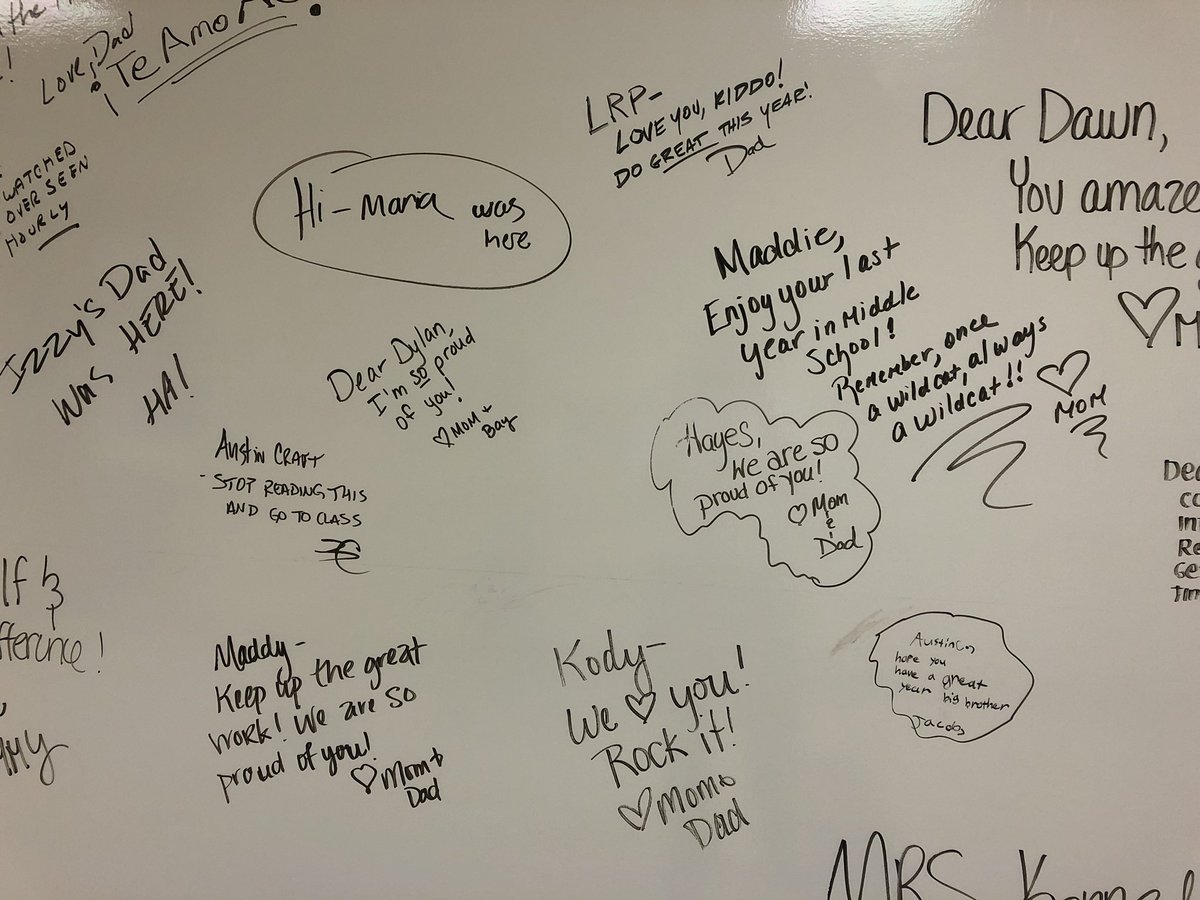 Love, Dad
¡Te Amo
WATCHED
OVER SEEN
HOURLY
Izzy's Dad
Was HERE!
HA!
Hi - Maria was
here
LRP-
LOVE YOU, KIDDO!
DO GREAT THIS YEAR!
Dad
Dear Dawn,
You amaze
Keep up the
Maddie,
Enjoy your last
year in Middle
School!
Remember, once
a wildcat, always
a wildcat!!
♡ MOM
Dear Dylan,
I'm so proud
of you!
♡ MOM +
Bay
Austin Craft
- STOP READING THIS
AND GO TO CLASS
Hayes,
We are so
proud of you!
♡ Mom
&
Dad
Maddy-
Keep up the great
work! We are so
proud of you!
♡ Mom +
Dad
Kody-
We ♡ you!
Rock it!
♡ Mom &
Dad
hope you
have a great
year big brother
Jacob
MRS